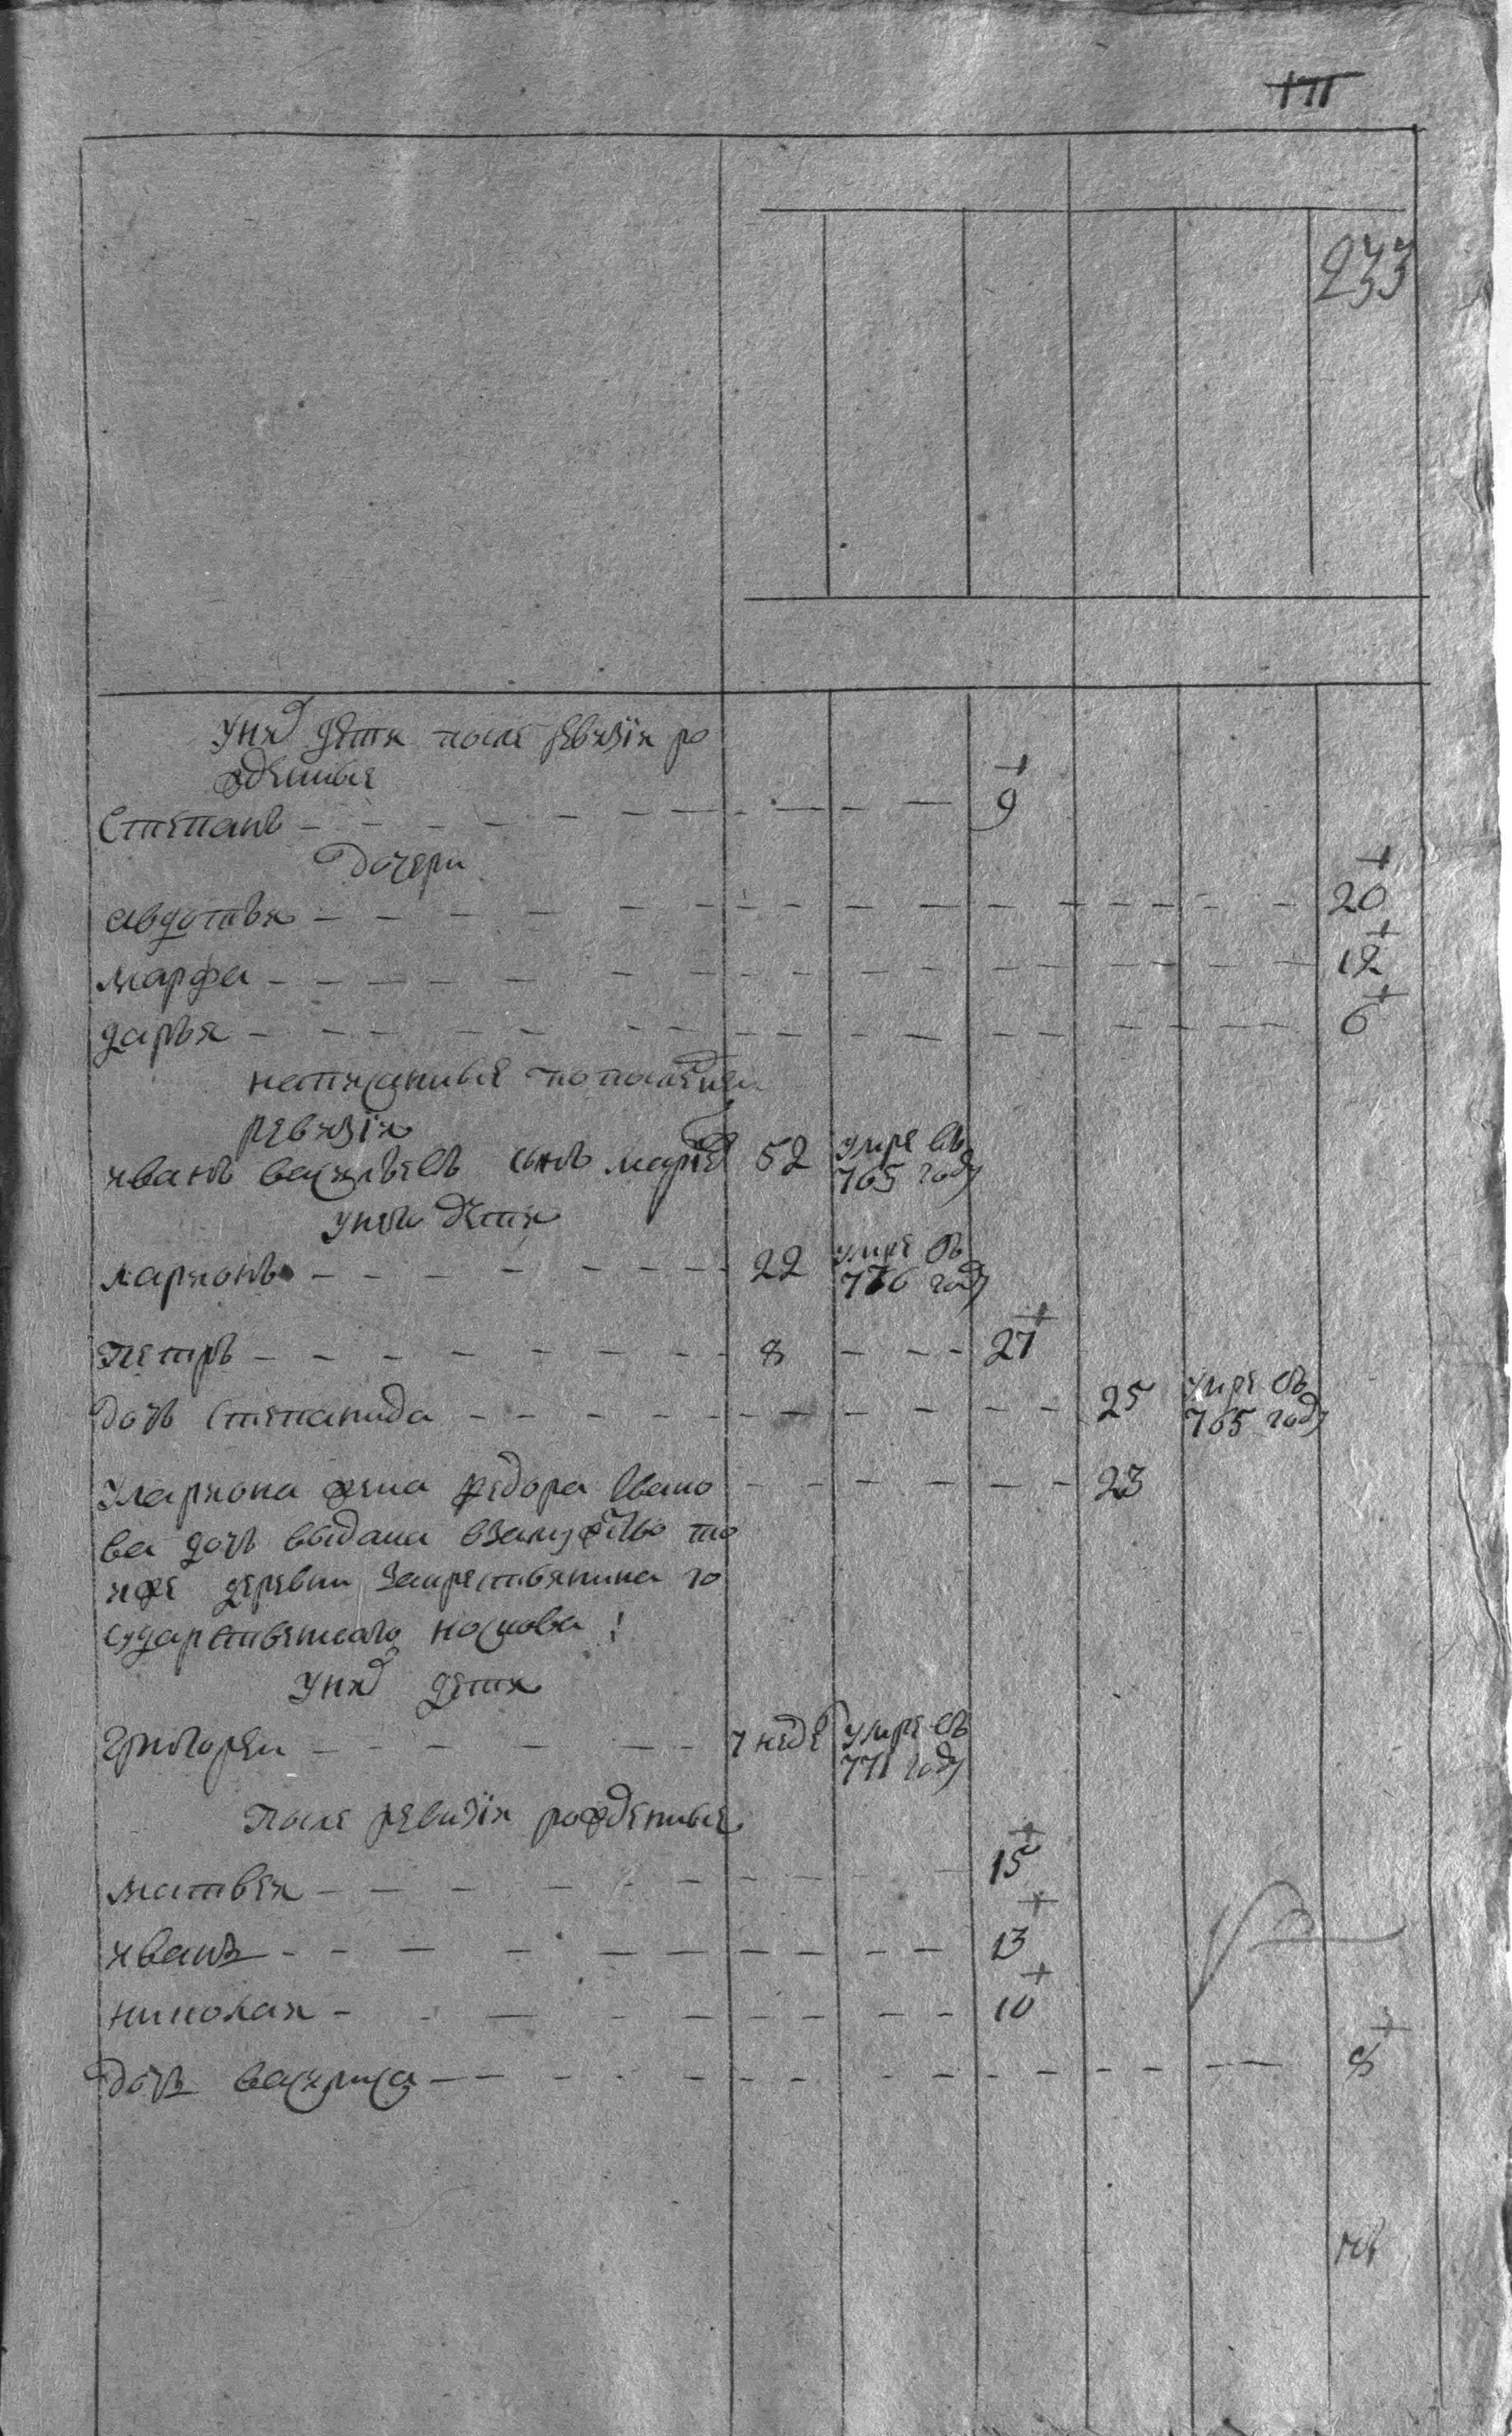 171
233
у них дети после ревизiи ро
жденные
Степанъ 9
дочери
авдотья 20
марфа 12
дарья 6
написанные по последней
ревизiи
иванъ васильевъ сынъ 52 умре въ 765 году
у него дети
ларионъ 22 умре въ 776 году
Петръ 8 27
дочь степанида 25 умре въ 765 году
У лариона жена федора Ивано 23
ва дочь выдана взамужство то
иже деревни за крестьянина го
сударственного носкова
у них дети
Григореи 7 неде умре въ 771 году
После ревизiи рожденные
матвеи 15
иванъ 13
николаи 10
дочь василиса 8